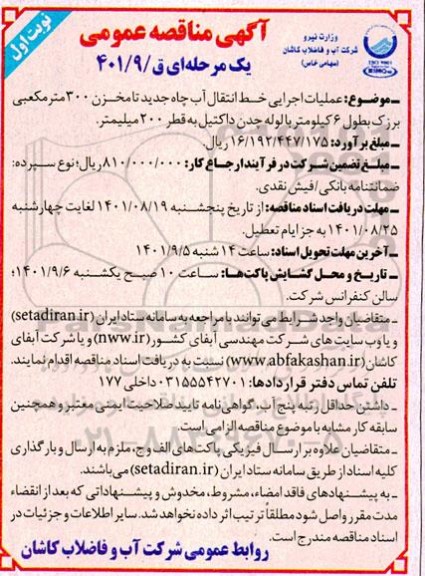 نوبت اول
وزارت نیرو
شرکت آب و فاضلاب کاشان
(سهامی خاص)
آگهی مناقصه عمومی
یک مرحله‌ای ق/۴۰۱/۹
ـ موضوع: عملیات اجرایی خط انتقال آب چاه جدید تا مخزن ۳۰۰ مترمکعبی
برزک بطول ۶ کیلومتر با لوله چدن داکتیل به قطر ۲۰۰ میلیمتر.
ـ مبلغ برآورد: ۱۶/۱۹۲/۴۴۷/۱۷۵ ریال.
ـ مبلغ تضمین شرکت در فرآیند ارجاع کار: ۸۱۰/۰۰۰/۰۰۰ ریال؛ نوع سپرده:
ضمانتنامه بانکی / فیش نقدی.
ـ مهلت دریافت اسناد مناقصه: از تاریخ پنجشنبه ۱۴۰۱/۰۸/۱۹ لغایت چهارشنبه
۱۴۰۱/۰۸/۲۵ به جز ایام تعطیل.
ـ آخرین مهلت تحویل اسناد: ساعت ۱۴ شنبه ۱۴۰۱/۹/۵
ـ تاریخ و محل گشایش پاکت‌ها: ساعت ۱۰ صبح یکشنبه ۱۴۰۱/۹/۶؛
سالن کنفرانس شرکت.
ـ متقاضیان واجد شرایط می‌توانند با مراجعه به سامانه ستاد ایران (setadiran.ir)
و یا وب سایت های شرکت مهندسی آبفای کشور (nww.ir) و یا شرکت آبفای
کاشان (www.abfakashan.ir) نسبت به دریافت اسناد مناقصه اقدام نمایند.
تلفن تماس دفتر قراردادها: ۰۳۱۵۵۵۴۲۷۰۱ داخلی ۱۷۷
ـ داشتن حداقل رتبه پنج آب، گواهی نامه تایید صلاحیت ایمنی معتبر و همچنین
سابقه کار مشابه با موضوع مناقصه الزامی است.
ـ متقاضیان علاوه بر ارسال فیزیکی پاکت‌های الف و ج، ملزم به ارسال و بارگذاری
کلیه اسناد از طریق سامانه ستاد ایران (setadiran.ir) می‌باشند.
ـ به پیشنهادهای فاقد امضاء، مشروط، مخدوش و پیشنهاداتی که بعد از انقضاء
مدت مقرر واصل شود مطلقاً ترتیب اثر داده نخواهد شد. سایر اطلاعات و جزئیات در
اسناد مناقصه مندرج است.
روابط عمومی شرکت آب و فاضلاب کاشان